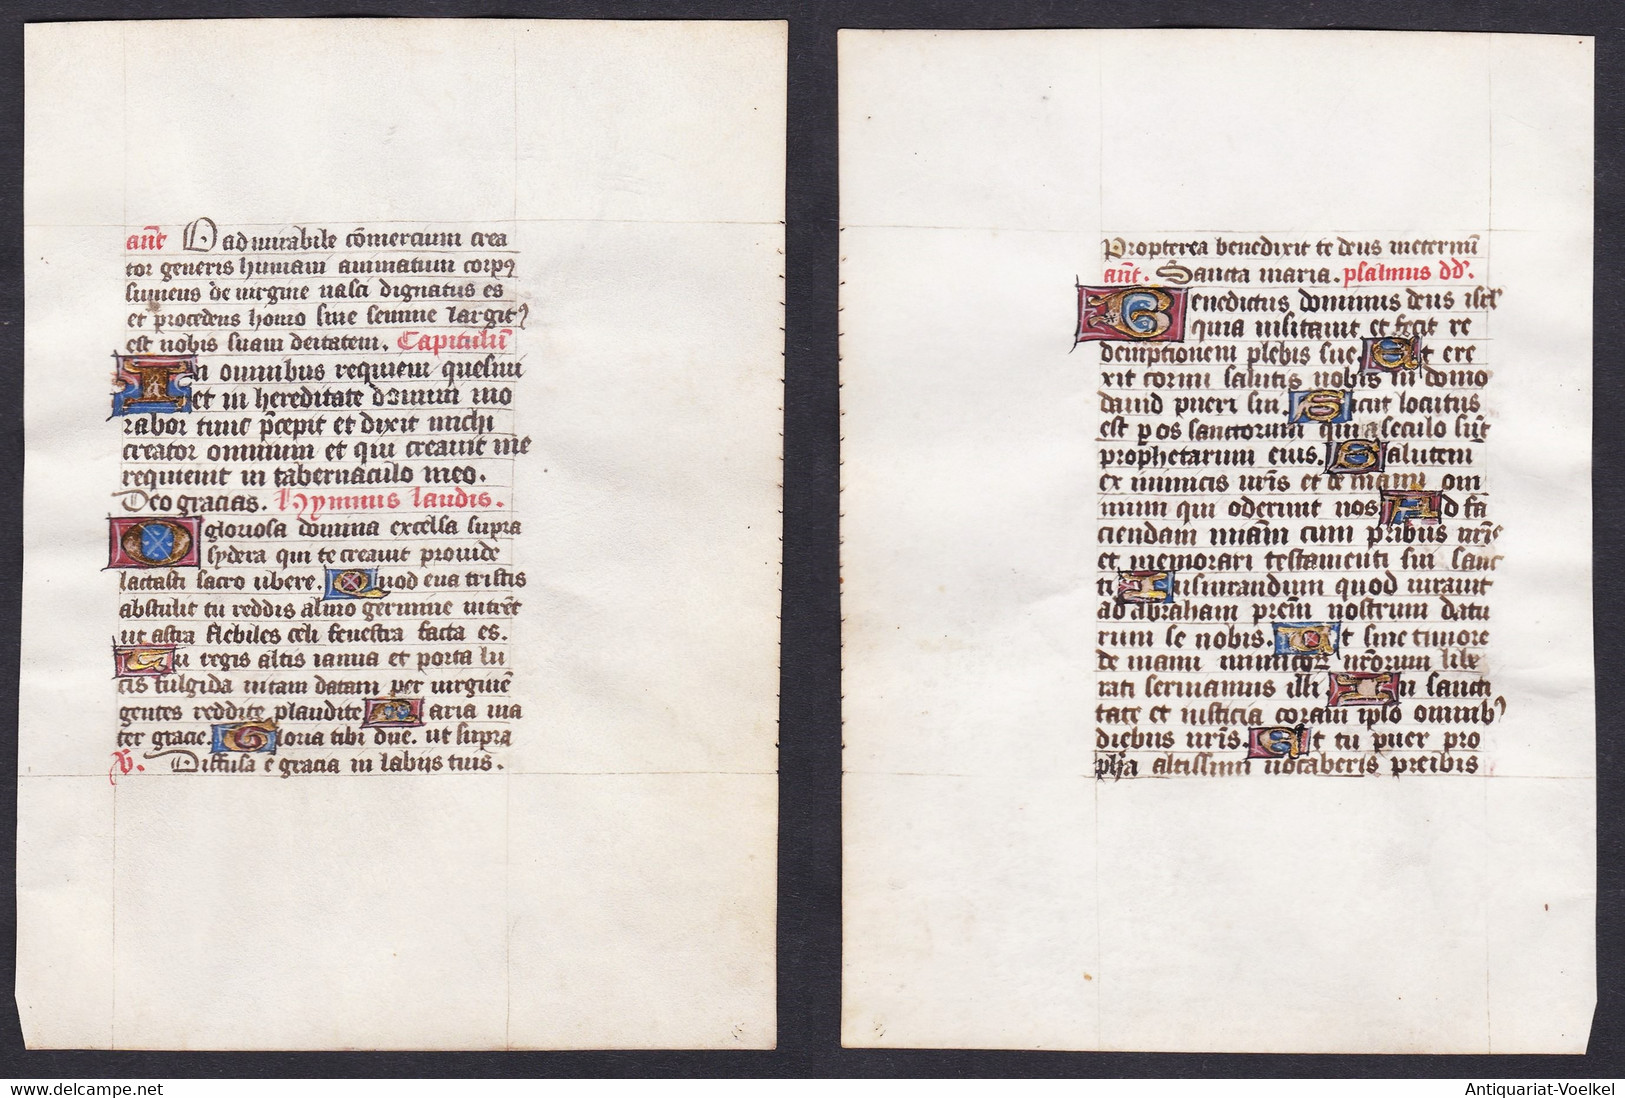 añt O admirabile cõmercium crea
tor generis humani animatum corpꝰ
sumens de virgine nasci dignatus es
et procedens homo sine semine largitꝰ
est nobis suam deitatem. Capitulũ
In omnibus requiem quesiui
et in hereditate domini mo
rabor tunc p̃cepit et dixit michi
creator omnium et qui creauit me
requieuit in tabernaculo meo.
Deo gracias. Hymnus laudis.
O gloriosa domina excelsa supra
sydera qui te creauit prouide
lactasti sacro ubere. Quod eua tristis
abstulit tu reddis almo germine intrẽt
ut astra flebiles celi fenestra facta es.
Tu regis altis ianua et porta lu
cis fulgida uitam datam per uirginẽ
gentes reddite plaudite. Maria ma
ter gracie. Gloria tibi dñe. ut supra
V. Diffusa ẽ gracia in labiis tuis.
Propterea benedixit te deus ineternũ
añt. Sancta maria. psalmus dd.
Benedictus dominus deus isrl
quia uisitauit et fecit re
demptionem plebis sue. Et ere
xit cornu salutis nobis in domo
dauid pueri sui. Sicut locutus
est p os sanctorum qui a seculo sũt
prophetarum eius. Salutem
ex inimicis nr̃is et de manu om
nium qui oderunt nos. Ad fa
ciendam miãm cum pribus nr̃is
et memorari testamenti sui sanc
ti. Iusiurandum quod iurauit
ad abraham prem̃ nostrum datu
rum se nobis. Ut sine timore
de manu inimicoꝝ nr̃orum libe
rati seruiamus illi. In sancti
tate et iusticia coram ipso omnibꝰ
diebus nr̃is. Et tu puer pro
pha altissimi uocaberis preibis
Antiquariat-Voelkel